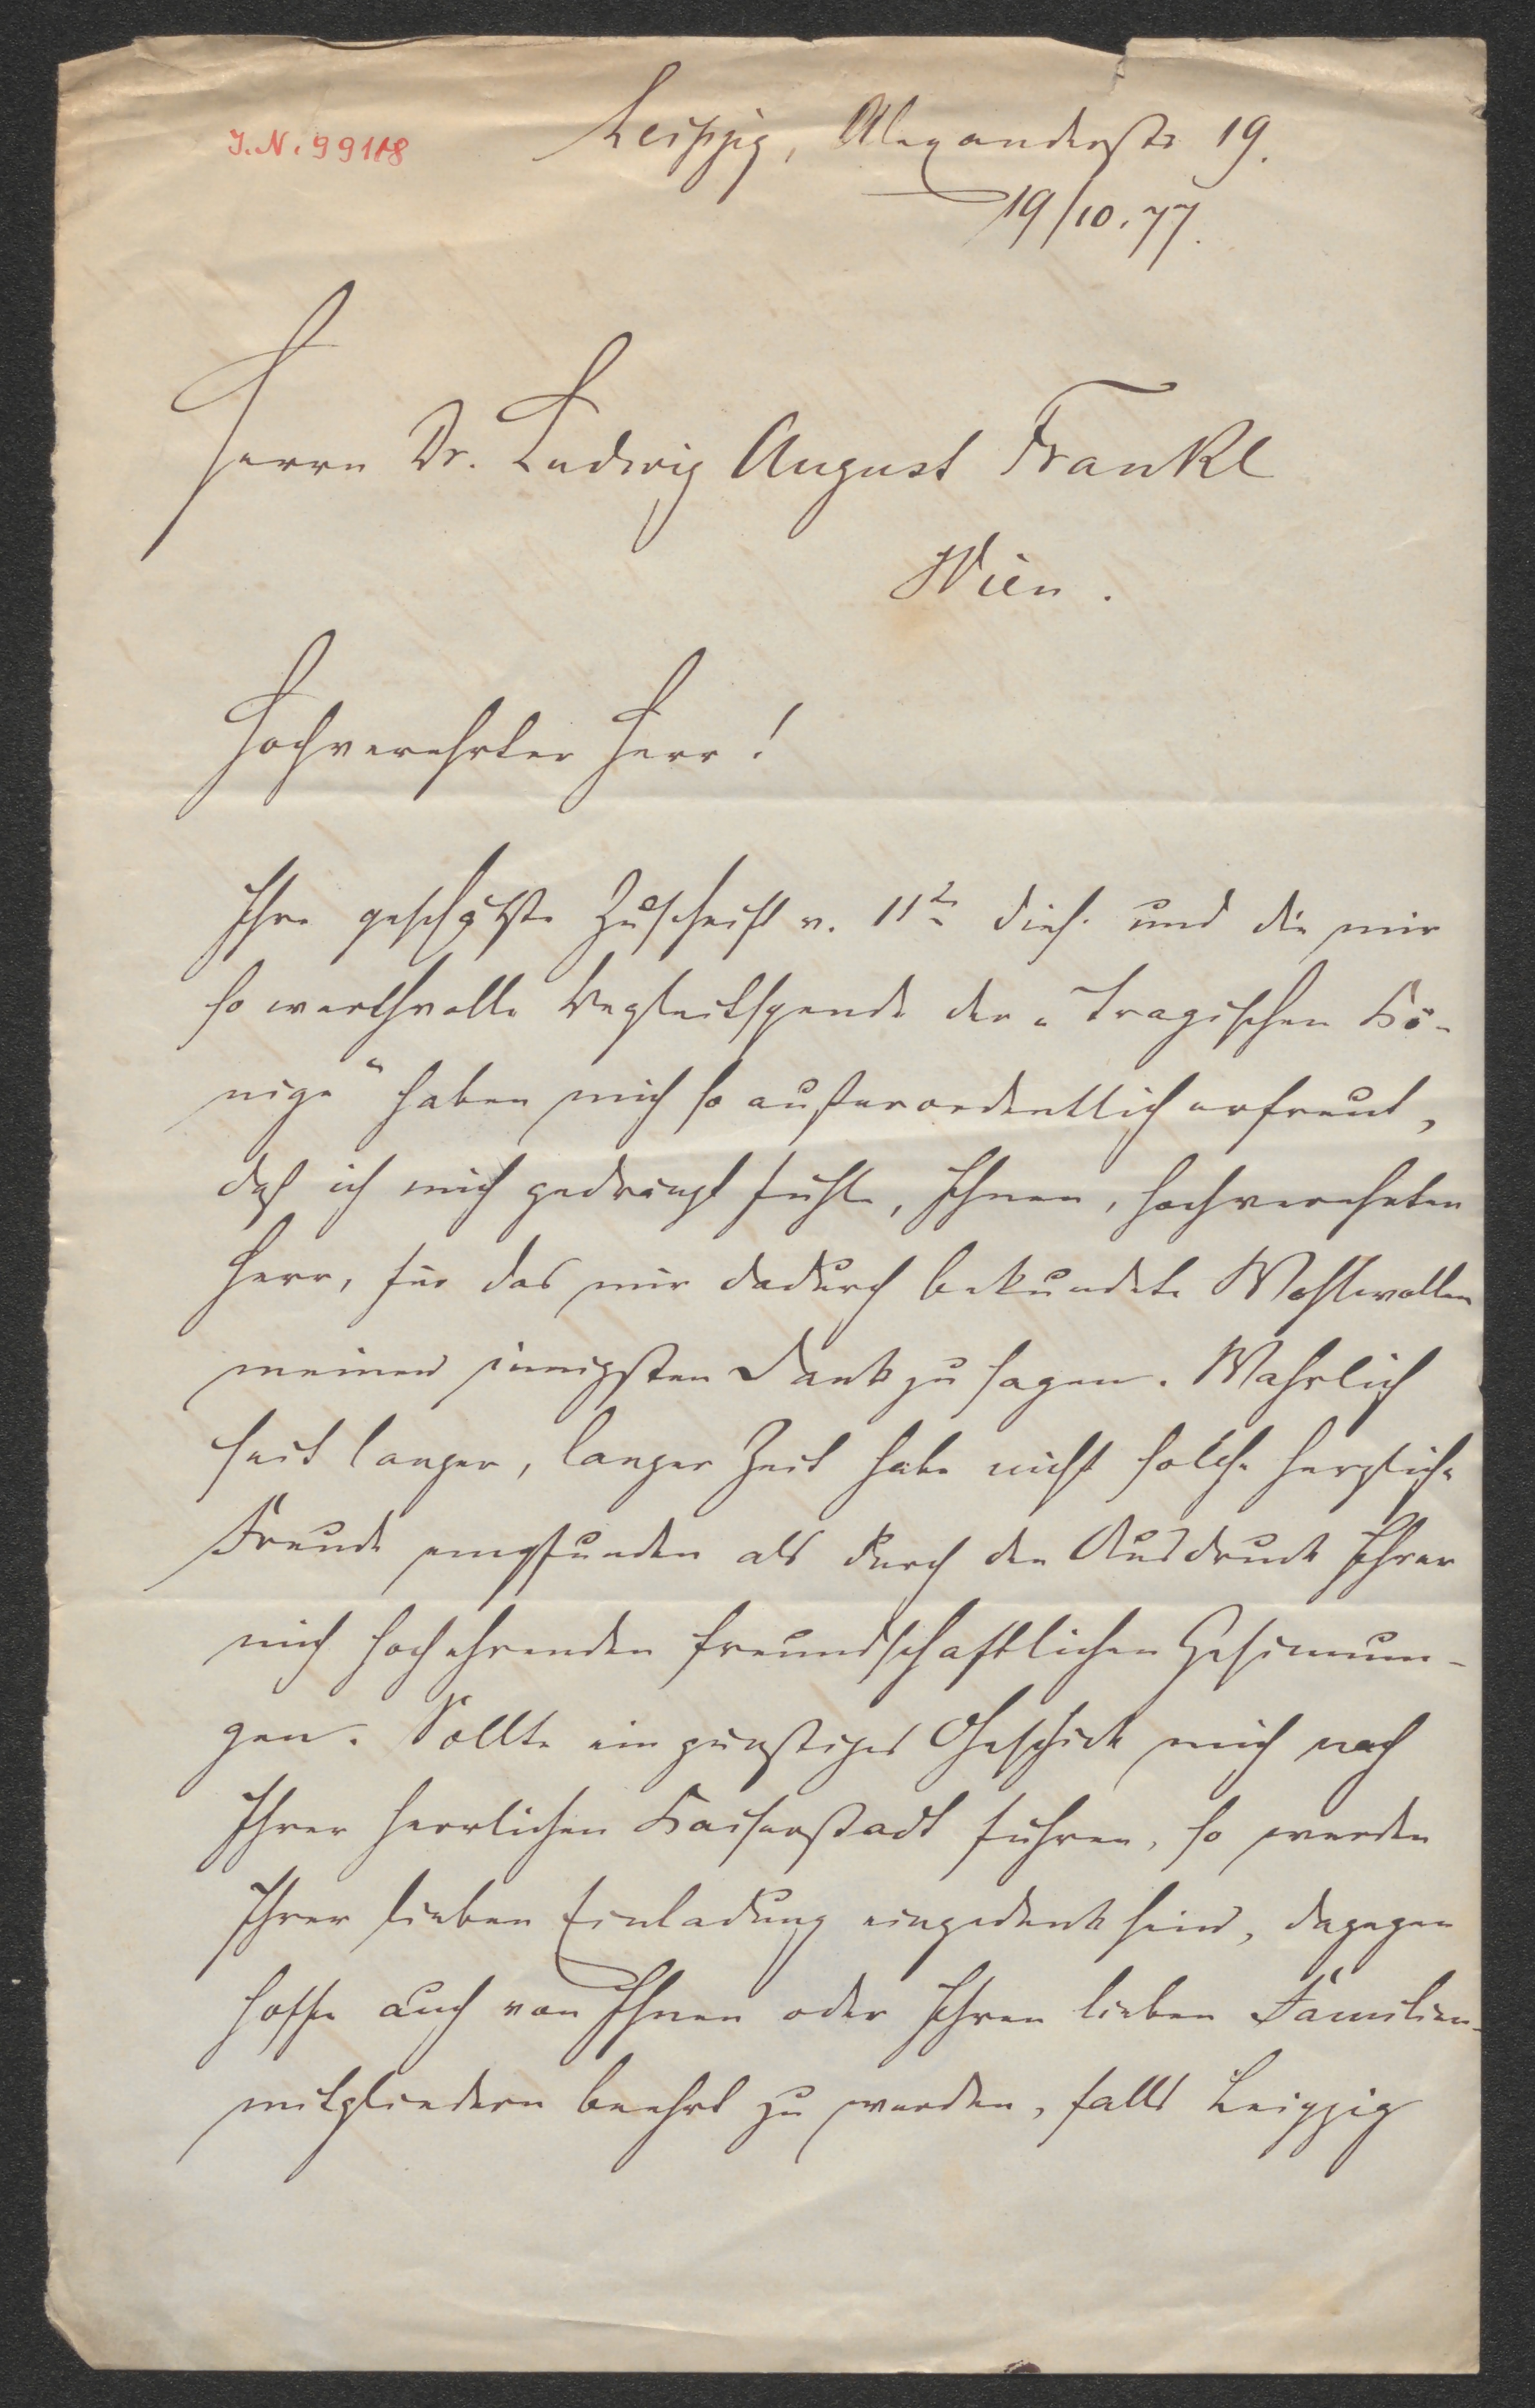 J.N. 99118
Leipzig, Alexanderstr 19.
19/10.77.
Herrn Dr. Ludwig August Frankl
Wien.
Hochverehrter Herr!
Ihre geschätzte Zuschrift v. 11ten dies. und die mir
so werthvolle Begleitspende der „Tragischen Kö-
nige“ haben mich so außerordentlich erfreut,
daß ich mich gedrängt fühle, Ihnen, hochverehrter
Herr, für das mir dadurch bekundete Wohlwollen
meinen innigsten Dank zu sagen. Wahrlich
seit langer, langer Zeit habe nicht solche herzliche
Freude empfunden als durch den Ausdruck Ihrer
mich hochehrenden freundschaftlichen Gesinnun-
gen. Sollte ein günstiges Geschick mich nach
Ihrer herrlichen Kaiserstadt führen, so werden
Ihrer lieben Einladung eingedenk sein, dagegen
hoffe auch von Ihnen oder Ihren lieben Familien-
mitgliedern beehrt zu werden, falls Leipzig